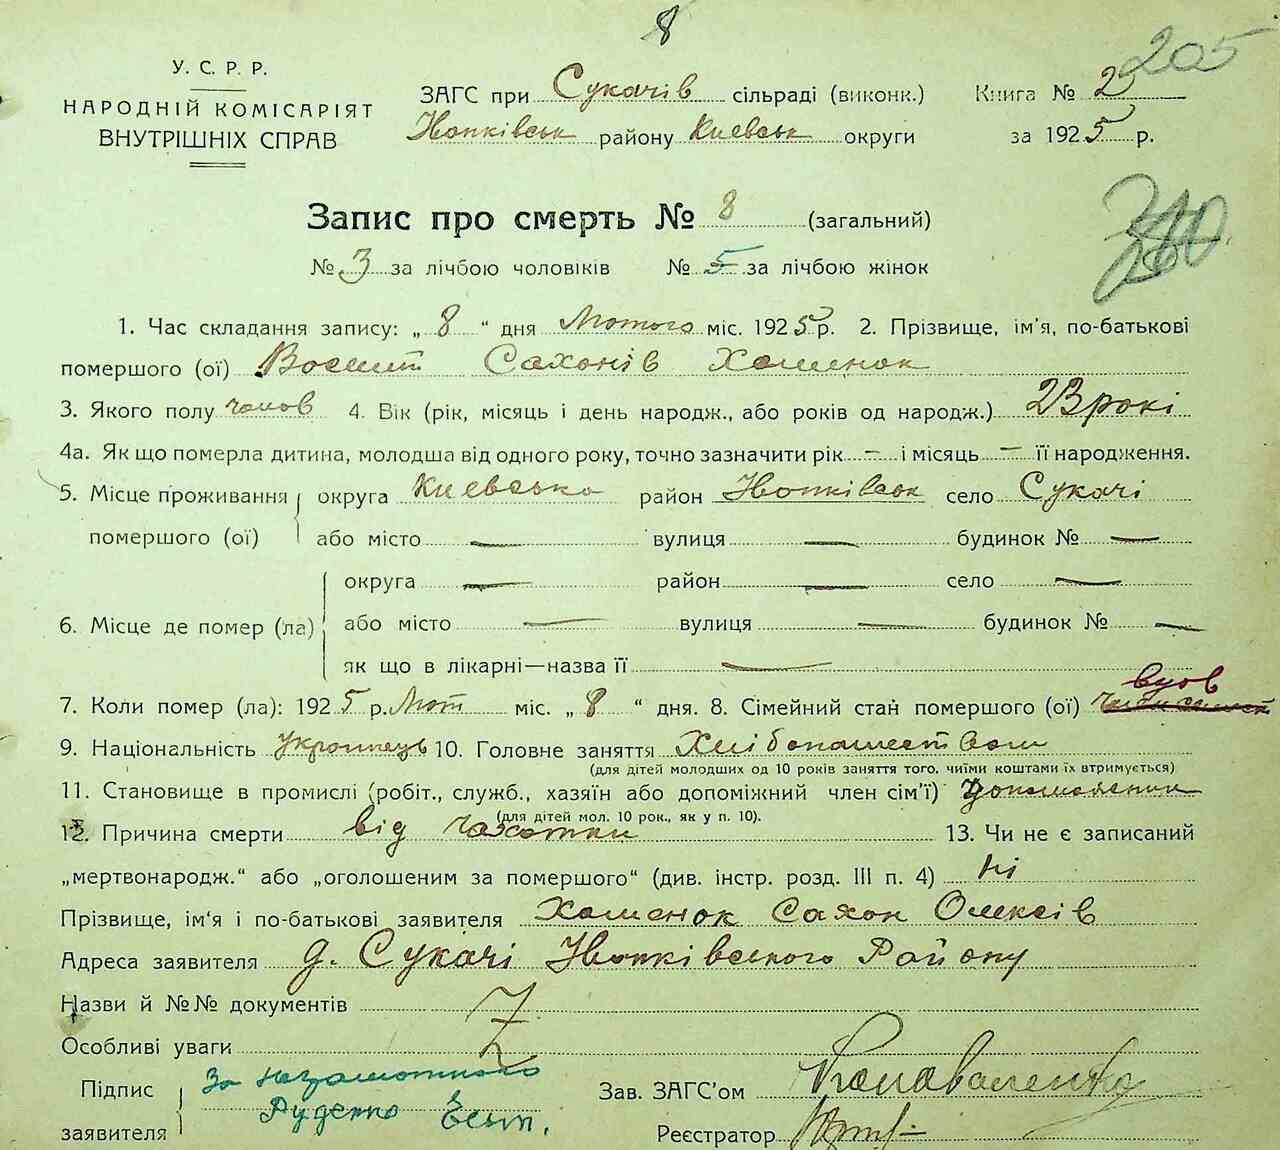 8
205
У. С. Р. Р.
НАРОДНІЙ КОМІСАРІЯТ
ВНУТРІШНІХ СПРАВ
ЗАГС при Сукачів сільраді (виконк.)
Книга № 2
районy Киевськ округи
за 1925 р.
Запис про смерть № 8 (загальний)
№ 3 за лічбою чоловіків № 5 за лічбою жінок
1. Час складання запису: „ 8 “ дня Лютого міс. 1925 р. 2. Прізвище, ім'я, по-батькові
помершого (ої) Сахонів Хоменок
3. Якого полу чолов 4. Вік (рік, місяць і день народж., або років од народж.) 23 рокі
4а. Як що померла дитина, молодша від одного року, точно зазначити рік — і місяць — її народження.
5. Місце проживання помершого (ої) округа Киевсько район село Сукачі
або місто — вулиця — будинок № —
6. Місце де помер (ла) округа — район — село —
або місто — вулиця — будинок № —
як що в лікарні—назва її —
7. Коли помер (ла): 1925 р. Лют міс. „ 8 “ дня. 8. Сімейний стан помершого (ої) вдов
9. Національність Українець 10. Головне заняття Хлібопашеством
(для дітей молодших од 10 років заняття того, чиїми коштами їх втримується)
11. Становище в промислі (робіт., служб., хазяїн або допоміжний член сім'ї)
(для дітей мол. 10 рок., як у п. 10).
12. Причина смерти від чахотки 13. Чи не є записаний
„мертвонародж.“ або „оголошеним за помершого“ (див. інстр. розд. III п. 4) Ні
Прізвище, ім'я і по-батькові заявителя Хоменок Сахон Олексів
Адреса заявителя д. Сукачі Району
Назви й №№ документів
Особливі уваги
Підпис заявителя За незамотного
Руденко
Зав. ЗАГС'ом Коноваленко
Реєстратор